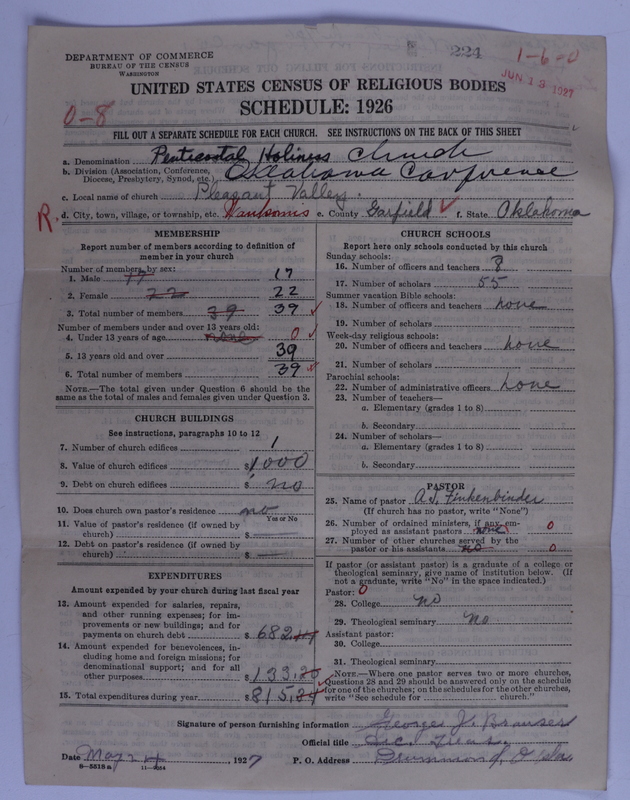 224
1-6-0
JUN 13 1927
DEPARTMENT OF COMMERCE
BUREAU OF THE CENSUS
WASHINGTON
UNITED STATES CENSUS OF RELIGIOUS BODIES
SCHEDULE: 1926
0-8
FILL OUT A SEPARATE SCHEDULE FOR EACH CHURCH. SEE INSTRUCTIONS ON THE BACK OF THIS SHEET
a. Denomination Pentecostal Holiness Church
b. Division (Association, Conference, Diocese, Presbytery, Synod, etc.) Oklahoma Conference
c. Local name of church Pleasant Valley
R. d. City, town, village, or township, etc. e. County Garfield f. State Oklahoma
MEMBERSHIP
Report number of members according to definition of member in your church
Number of members by sex:
1. Male 17 17
2. Female 22 22
3. Total number of members 39 39
Number of members under and over 13 years old:
4. Under 13 years of age none 0
5. 13 years old and over 39
6. Total number of members 39
NOTE.—The total given under Question 6 should be the same as the total of males and females given under Question 3.
CHURCH BUILDINGS
See instructions, paragraphs 10 to 12
7. Number of church edifices 1
8. Value of church edifices $1000
9. Debt on church edifices $ no
10. Does church own pastor's residence? no
Yes or No
11. Value of pastor's residence (if owned by church) $ —
12. Debt on pastor's residence (if owned by church) $ —
EXPENDITURES
Amount expended by your church during last fiscal year
13. Amount expended for salaries, repairs, and other running expenses; for improvements or new buildings; and for payments on church debt $ 682
14. Amount expended for benevolences, including home and foreign missions; for denominational support; and for all other purposes $ 133.20
15. Total expenditures during year $ 815.
CHURCH SCHOOLS
Report here only schools conducted by this church
Sunday schools:
16. Number of officers and teachers 8
17. Number of scholars 55
Summer vacation Bible schools:
18. Number of officers and teachers none
19. Number of scholars
Week-day religious schools:
20. Number of officers and teachers none
21. Number of scholars
Parochial schools:
22. Number of administrative officers none
23. Number of teachers—
a. Elementary (grades 1 to 8)
b. Secondary
24. Number of scholars—
a. Elementary (grades 1 to 8)
b. Secondary
PASTOR
25. Name of pastor A. J. Finkenbinder
(If church has no pastor, write "None")
26. Number of ordained ministers, if any employed as assistant pastors none 0
27. Number of other churches served by the pastor or his assistants no 0
If pastor (or assistant pastor) is a graduate of a college or theological seminary, give name of institution below. (If not a graduate, write "No" in the space indicated.)
Pastor: 0
28. College no
29. Theological seminary no
Assistant pastor:
30. College
31. Theological seminary
NOTE.—Where one pastor serves two or more churches, Questions 28 and 29 should be answered only on the schedule for one of the churches; on the schedules for the other churches, write "See schedule for church."
Signature of person furnishing information George J.
Official title Sec. Treas.
Date May 24, 1927 P. O. Address Drummond, Okla
8-5518a 11-9564